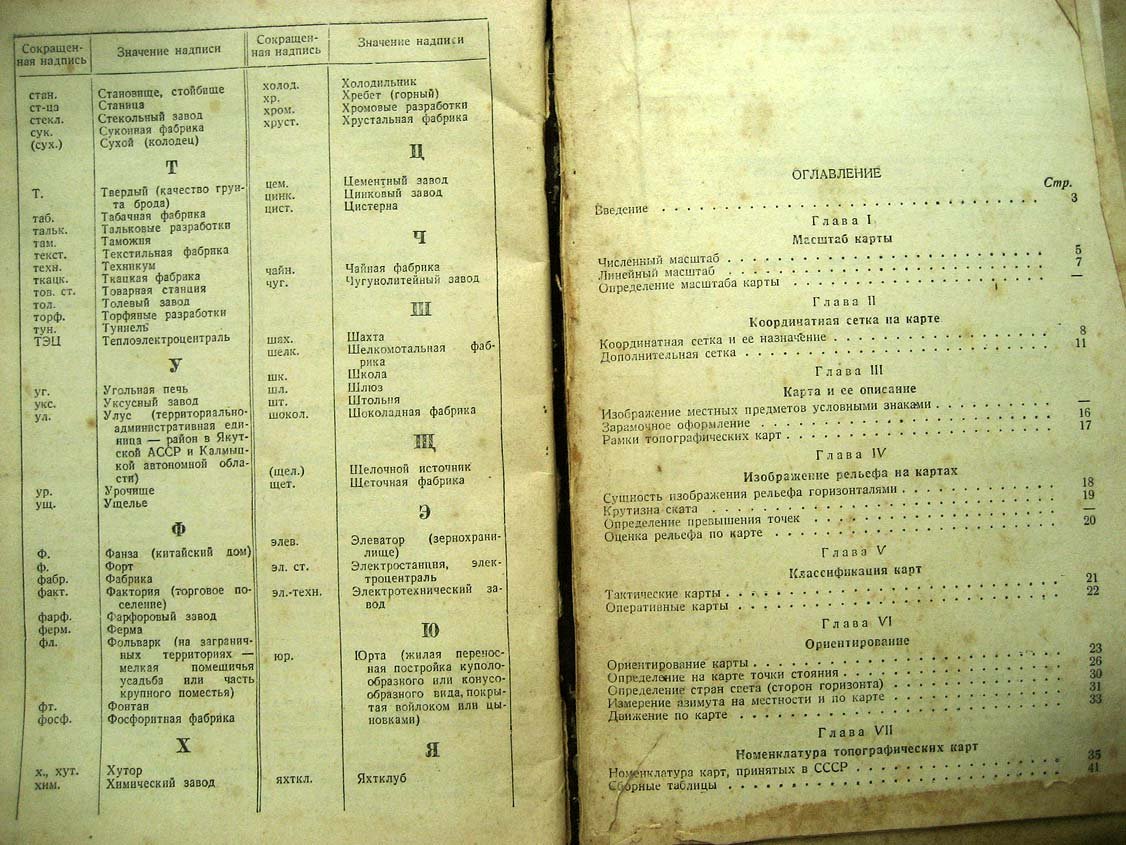 Сокращен-
ная надпись
Значение надписи
стан. Становище, стойбище
ст-ца Станица
стекл. Стекольный завод
сук. Суконная фабрика
(сух.) Сухой (колодец)
Т
Т. Твердый (качество грун-
та брода)
таб. Табачная фабрика
тальк. Тальковые разработки
там. Таможня
текст. Текстильная фабрика
техн. Техникум
ткацк. Ткацкая фабрика
тов. ст. Товарная станция
тол. Толевый завод
торф. Торфяные разработки
тун. Туннель
ТЭЦ Теплоэлектроцентраль
У
уг. Угольная печь
укс. Уксусный завод
ул. Улус (территориально-
административная еди-
ница — район в Якут-
ской АССР и Калмыц-
кой автономной обла-
сти)
ур. Урочище
ущ. Ущелье
Ф
Ф. Фанза (китайский дом)
ф. Форт
фабр. Фабрика
факт. Фактория (торговое по-
селение)
фарф. Фарфоровый завод
ферм. Ферма
фл. Фольварк (на загранич-
ных территориях —
мелкая помещичья
усадьба или часть
крупного поместья)
фт. Фонтан
фосф. Фосфоритная фабрика
Х
х., хут. Хутор
хим. Химический завод
Сокращен-
ная надпись
Значение надписи
холод. Холодильник
хр. Хребет (горный)
хром. Хромовые разработки
хруст. Хрустальная фабрика
Ц
цем. Цементный завод
цинк. Цинковый завод
цист. Цистерна
Ч
чайн. Чайная фабрика
чуг. Чугунолитейный завод
Ш
шах. Шахта
шелк. Шелкомотальная фаб-
рика
шк. Школа
шл. Шлюз
шт. Штольня
шокол. Шоколадная фабрика
Щ
(щел.) Щелочной источник
щет. Щеточная фабрика
Э
элев. Элеватор (зернохрани-
лище)
эл. ст. Электростанция, элек-
троцентраль
эл.-техн. Электротехнический за-
вод
Ю
юр. Юрта (жилая перенос-
ная постройка куполо-
образного или конусо-
образного вида, покры-
тая войлоком или цы-
новками)
Я
яхткл. Яхтклуб
ОГЛАВЛЕНИЕ
Стр.
Введение 3
Глава I
Масштаб карты
Численный масштаб 5
Линейный масштаб 7
Определение масштаба карты —
Глава II
Координатная сетка на карте
Координатная сетка и ее назначение 8
Дополнительная сетка 11
Глава III
Карта и ее описание
Изображение местных предметов условными знаками —
Зарамочное оформление 16
Рамки топографических карт 17
Глава IV
Изображение рельефа на картах
Сущность изображения рельефа горизонталями 18
Крутизна ската 19
Определение превышения точек —
Оценка рельефа по карте 20
Глава V
Классификация карт
Тактические карты 21
Оперативные карты 22
Глава VI
Ориентирование
Ориентирование карты 23
Определение на карте точки стояния 26
Определение стран света (сторон горизонта) 30
Измерение азимута на местности и по карте 31
Движение по карте 33
Глава VII
Номенклатура топографических карт
Номенклатура карт, принятых в СССР 35
Сборные таблицы 41